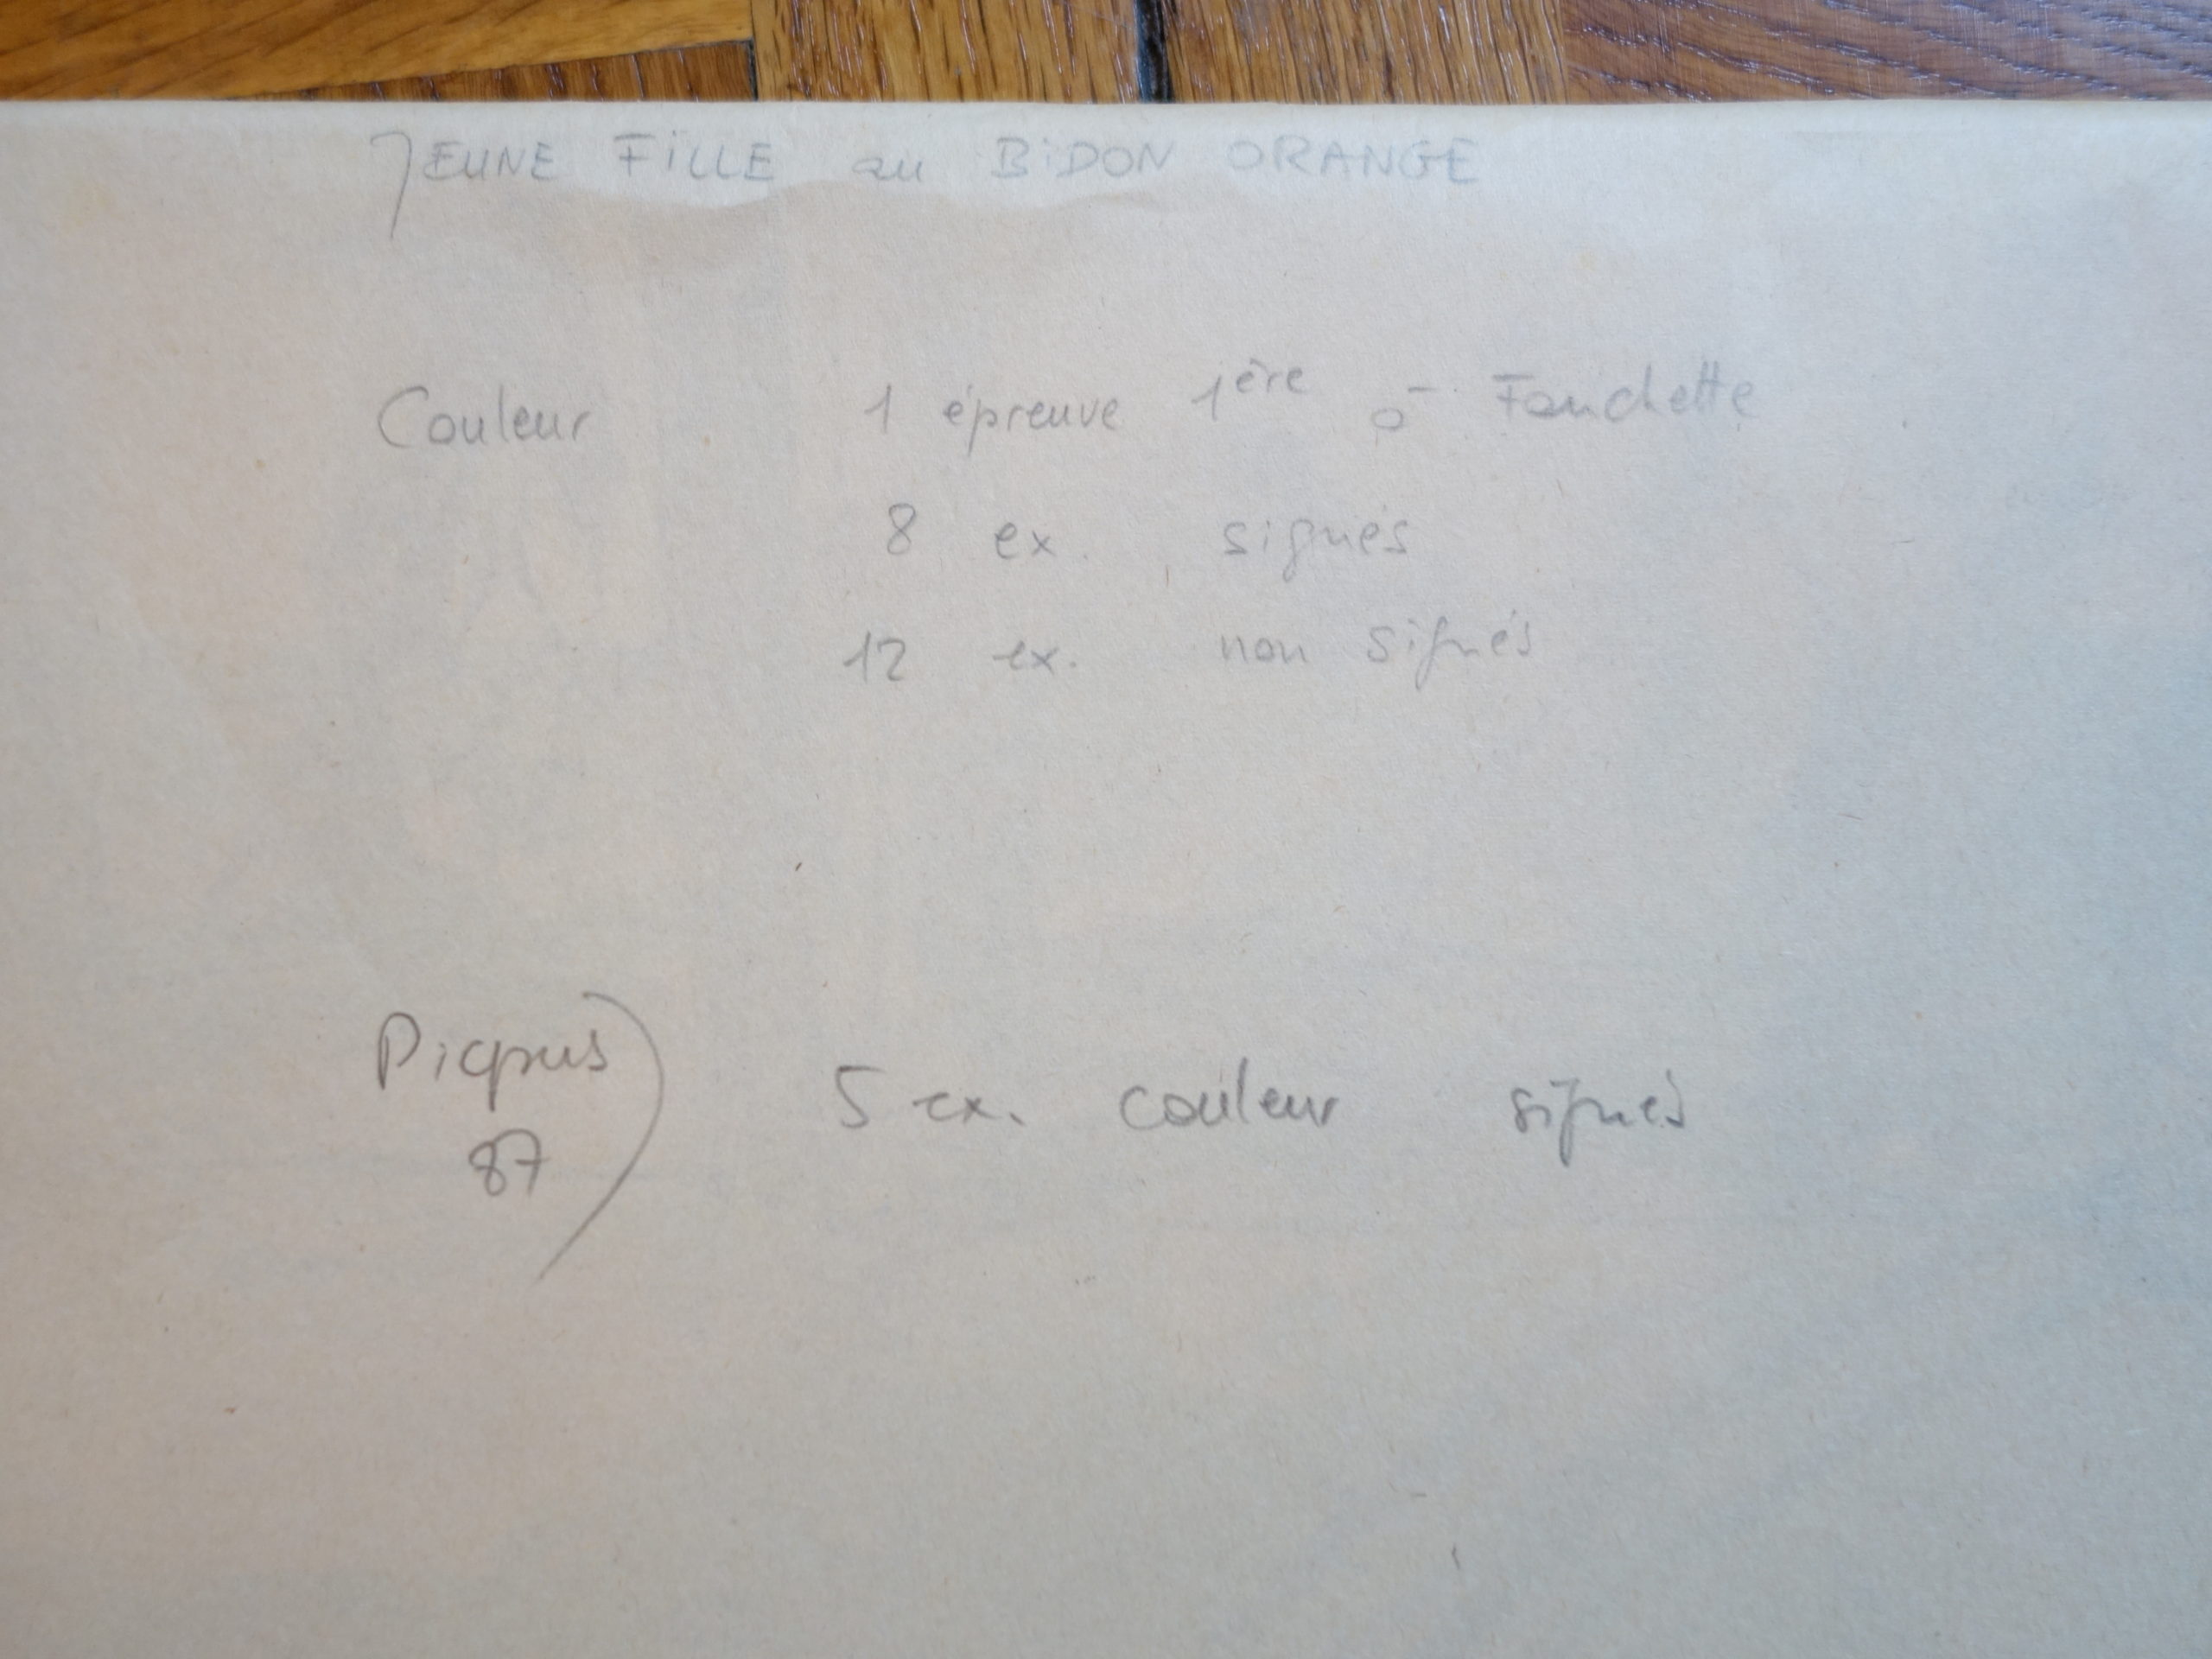 JEUNE FiLLE au BiDON ORANGE
Couleur 1 épreuve 1ère à Fanchette
8 ex. signés
12 ex. non signés
Picpus
87
5 ex. couleur signés